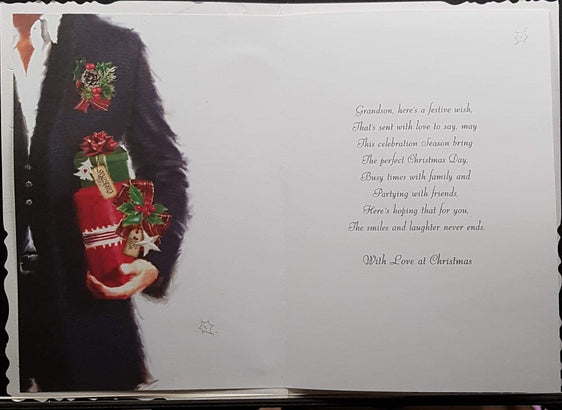 Grandson, here's a festive wish,
That's sent with love to say, may
This celebration Season bring
The perfect Christmas Day,
Busy times with family and
Partying with friends,
Here's hoping that for you,
The smiles and laughter never ends.
With Love at Christmas